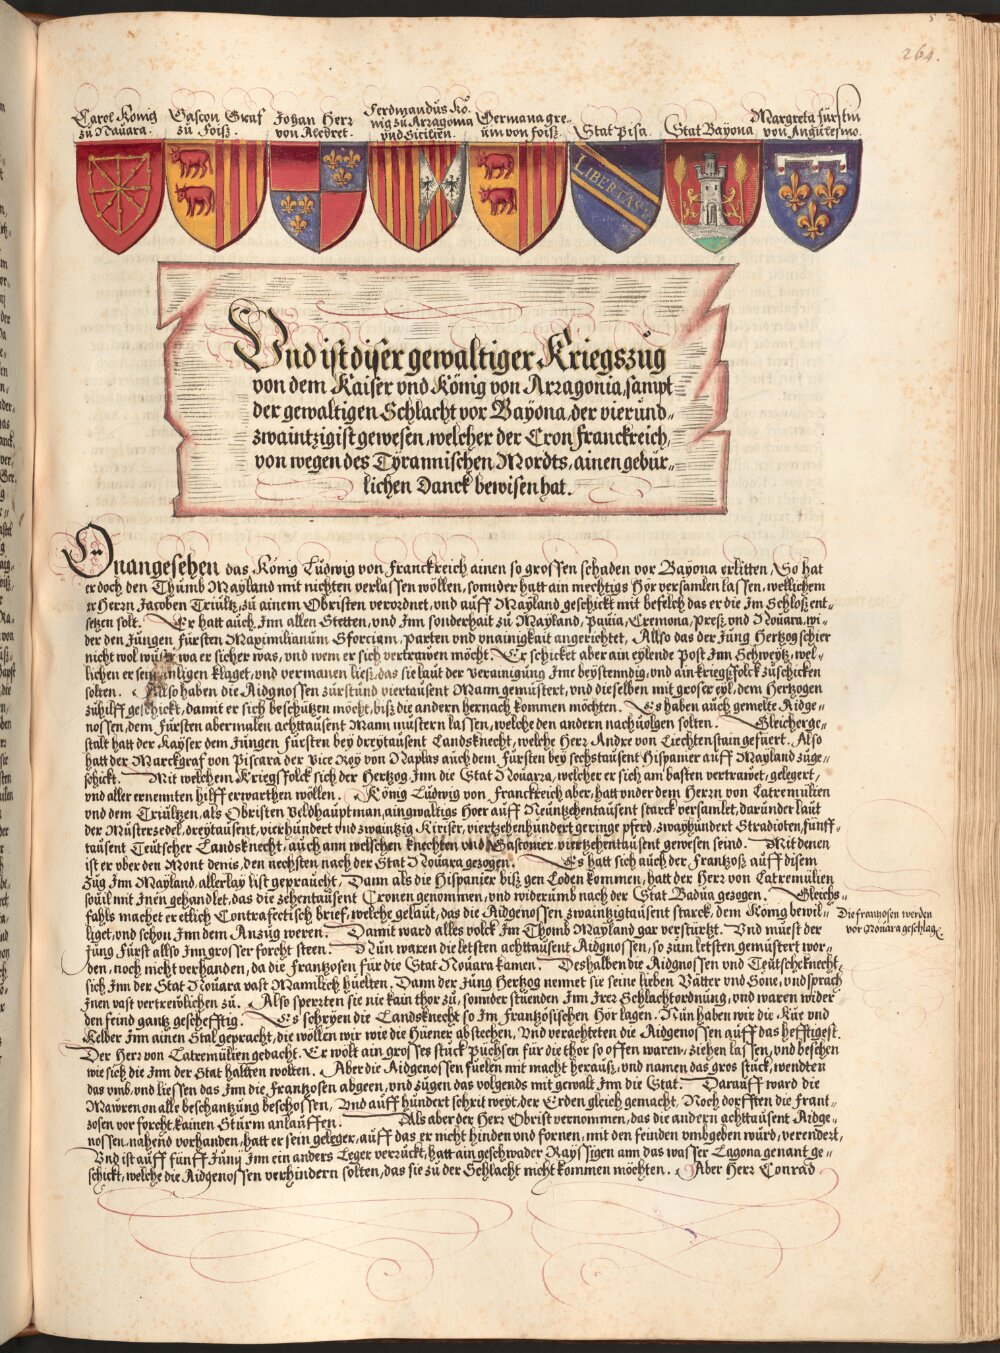 264.
Carol König
zu Nauara.
Gaston Graf
zu Foiß.
Johan Herr
von Alebret.
Ferdinandus Kö-
nig zu Arragonia
vnd Sicilien.
Germana gre-
uin von foiß.
Stat Pisa.
Stat Bayona
Margreta fürstin
von Angulesmo.
LIBERTAS
Vnd ist diser gewaltiger Kriegszug
von dem Kaiser vnd König von Arragonia, sampt
der gewaltigen Schlacht vor Bayona, der vierund-
zwaintzigist gewesen, welcher der Cron Franckreich,
von wegen des Tyrannischen Mordts, ainen gebür-
lichen Danck bewisen hat.
Vnangesehen das König Ludwig von Franckreich ainen so grossen schaden vor Bayona erlitten, So hat
er doch den Thumb Mayland mit nichten verlassen wöllen, sonnder hatt ain mechtigs Hör versamlen lassen, wellichem
er Herrn Jacoben Triultz zu ainem Obristen verordnet, vnd auff Mayland geschickt mit befelch das er die Im Schloß ent-
setzen solt. Er hatt auch Inn allen Stetten, vnd Inn sonderhait zu Mayland, Pauia, Cremona, Preß, vnd Nouara, wi-
der den Jungen fürsten Maximilianum Sforciam, parten vnd vnainigkait angerichtet, Allso das der Jung Hertzog schier
nicht wol wußt wa er sicher was, vnd wem er sich vertrawen möcht. Er schicket aber ain eylende Post Inn Schweytz, wel-
lichen er sein anligen klaget, vnd vermanen ließ, das sie laut der verainigung Ime beystenndig, vnd ain kriegsfolck zuschicken
solten. Allso haben die Aidgnossen zurstund viertausent Mann gemustert, vnd dieselben mit groser eyl, dem Hertzogen
zuhilff geschickt, damit er sich beschützen möcht, biß die andern hernach kommen möchten. Es haben auch gemelte Aidge-
nossen, dem Fürsten abermalen achttausent Mann mustern lassen, welche den andern nachuolgen solten. Gleicherge-
stalt hatt der Kayser dem Jungen fürsten bey dreytausent Landsknecht, welche Herr Andre von Liechtenstain gefuert. Also
hatt der Marckgraf von Piscara der Vice Roy von Naplas auch dem Fürsten bey sechstausent Hispanier auff Mayland zuge-
schickt. Mit welchem Kriegsfolck sich der Hertzog Inn die Stat Nouarra, welcher er sich am basten vertrawet, gelegert,
vnd aller ernennten hilff erwarthen wöllen. König Ludwig von Franckreich aber, hatt vnder dem Herrn von Latremulien
vnd dem Triultzen, als Obristen Veldhauptman, ain gwaltigs Hoer auff Neuntzehentausent starck versamlet, darunder laut
der Musterzedel, dreytausent, vierhundert vnd zwaintzig Kiriser, viertzehenhundert geringe pferd, zwayhundert Stradioten, funff-
tausent Teutscher Landsknecht, auch ann welschen knechten vnd Gastonier viertzehentausent gewesen seind. Mit denen
ist er vber den Mont denis, den nechsten nach der Stat Nouara gezogen. Es hatt sich auch der Frantzoß auff disem
Zug Inn Mayland, allerlay list gepraucht, Dann als die Hispanier biß gen Loden kommen, hatt der Herr von Latremulien
souil mit Inen gehandlet, das die zehentausent Cronen genommen, vnd widerumb nach der Stat Badua gezogen. Gleichs-
fahls machet er etlich Contrafectisch brief, welche gelaut, das die Aidgenossen zwaintzigtausent starck, dem König bewil-
liget, vnd schon Inn dem Anzug weren. Damit ward alles volck Im Thomb Mayland gar verstürtzt. Vnd muest der
Jung Fürst allso Inn grosser forcht steen. Nun waren die letsten achttausent Aidgnossen, so zum letsten gemustert wor-
den, noch nicht verhanden, da die Frantzosen für die Stat Nouara kamen. Deshalben die Aidgnossen vnd Teutsche knecht,
sich Inn der Stat Nouara vast Mannlich hüelten. Dann der Jung Hertzog nennet sie seine lieben Vätter vnd Söne, vnd sprach
Inen vast vertrewlichen zu. Also sperzten sie nie kain thor zu, sonnder stuenden Inn Irer Schlachtordnung, vnd waren wider
den feind gantz geschefftig. Es schryen die Landsknecht so Im Frantzösischen Hör lagen. Nun haben wir die Küe vnd
Kelber Inn ainen Stal gepracht, die wollen wir wie die Hüener abstechen, Vnd verachteten die Aidgenossen auff das hefftigest.
Der Herr von Latremulien gedacht, Er wölt ain grosses stuck Puchsen für die thor so offen waren, ziehen lassen, vnd besehen
wie sich die Inn der Stat hallten wolten. Aber die Aidgenossen fuelen mit macht herauß, vnd namen das gros stuck, wendten
das vmb, vnd liessen das Inn die Frantzosen abgeen, vnd zugen das volgends mit gewalt Inn die Stat. Darauff ward die
Mawren on alle beschantzung beschossen, Vnd auff hundert schrit weyt, der Erden gleich gemacht, Noch dorfften die Frant-
zosen vor forcht kainen Sturm anlauffen. Als aber der Herr Obrist vernommen, das die andern achttausent Aidge-
nossen, nahend vorhanden, hatt er sein geleger, auff das er nicht hinden vnd fornen, mit den feinden vmbgeben würd, verendert,
Vnd ist auff funff Juny Inn ein anders Leger verruckt, hatt ain geschwader Raysigen ann das wasser Lagona genant ge-
schickt, welche die Aidgenossen verhindern solten, das sie zu der Schlacht nicht kommen möchten. Aber Herr Conrad
Die frantzosen werden
vor Nouara geschlag.